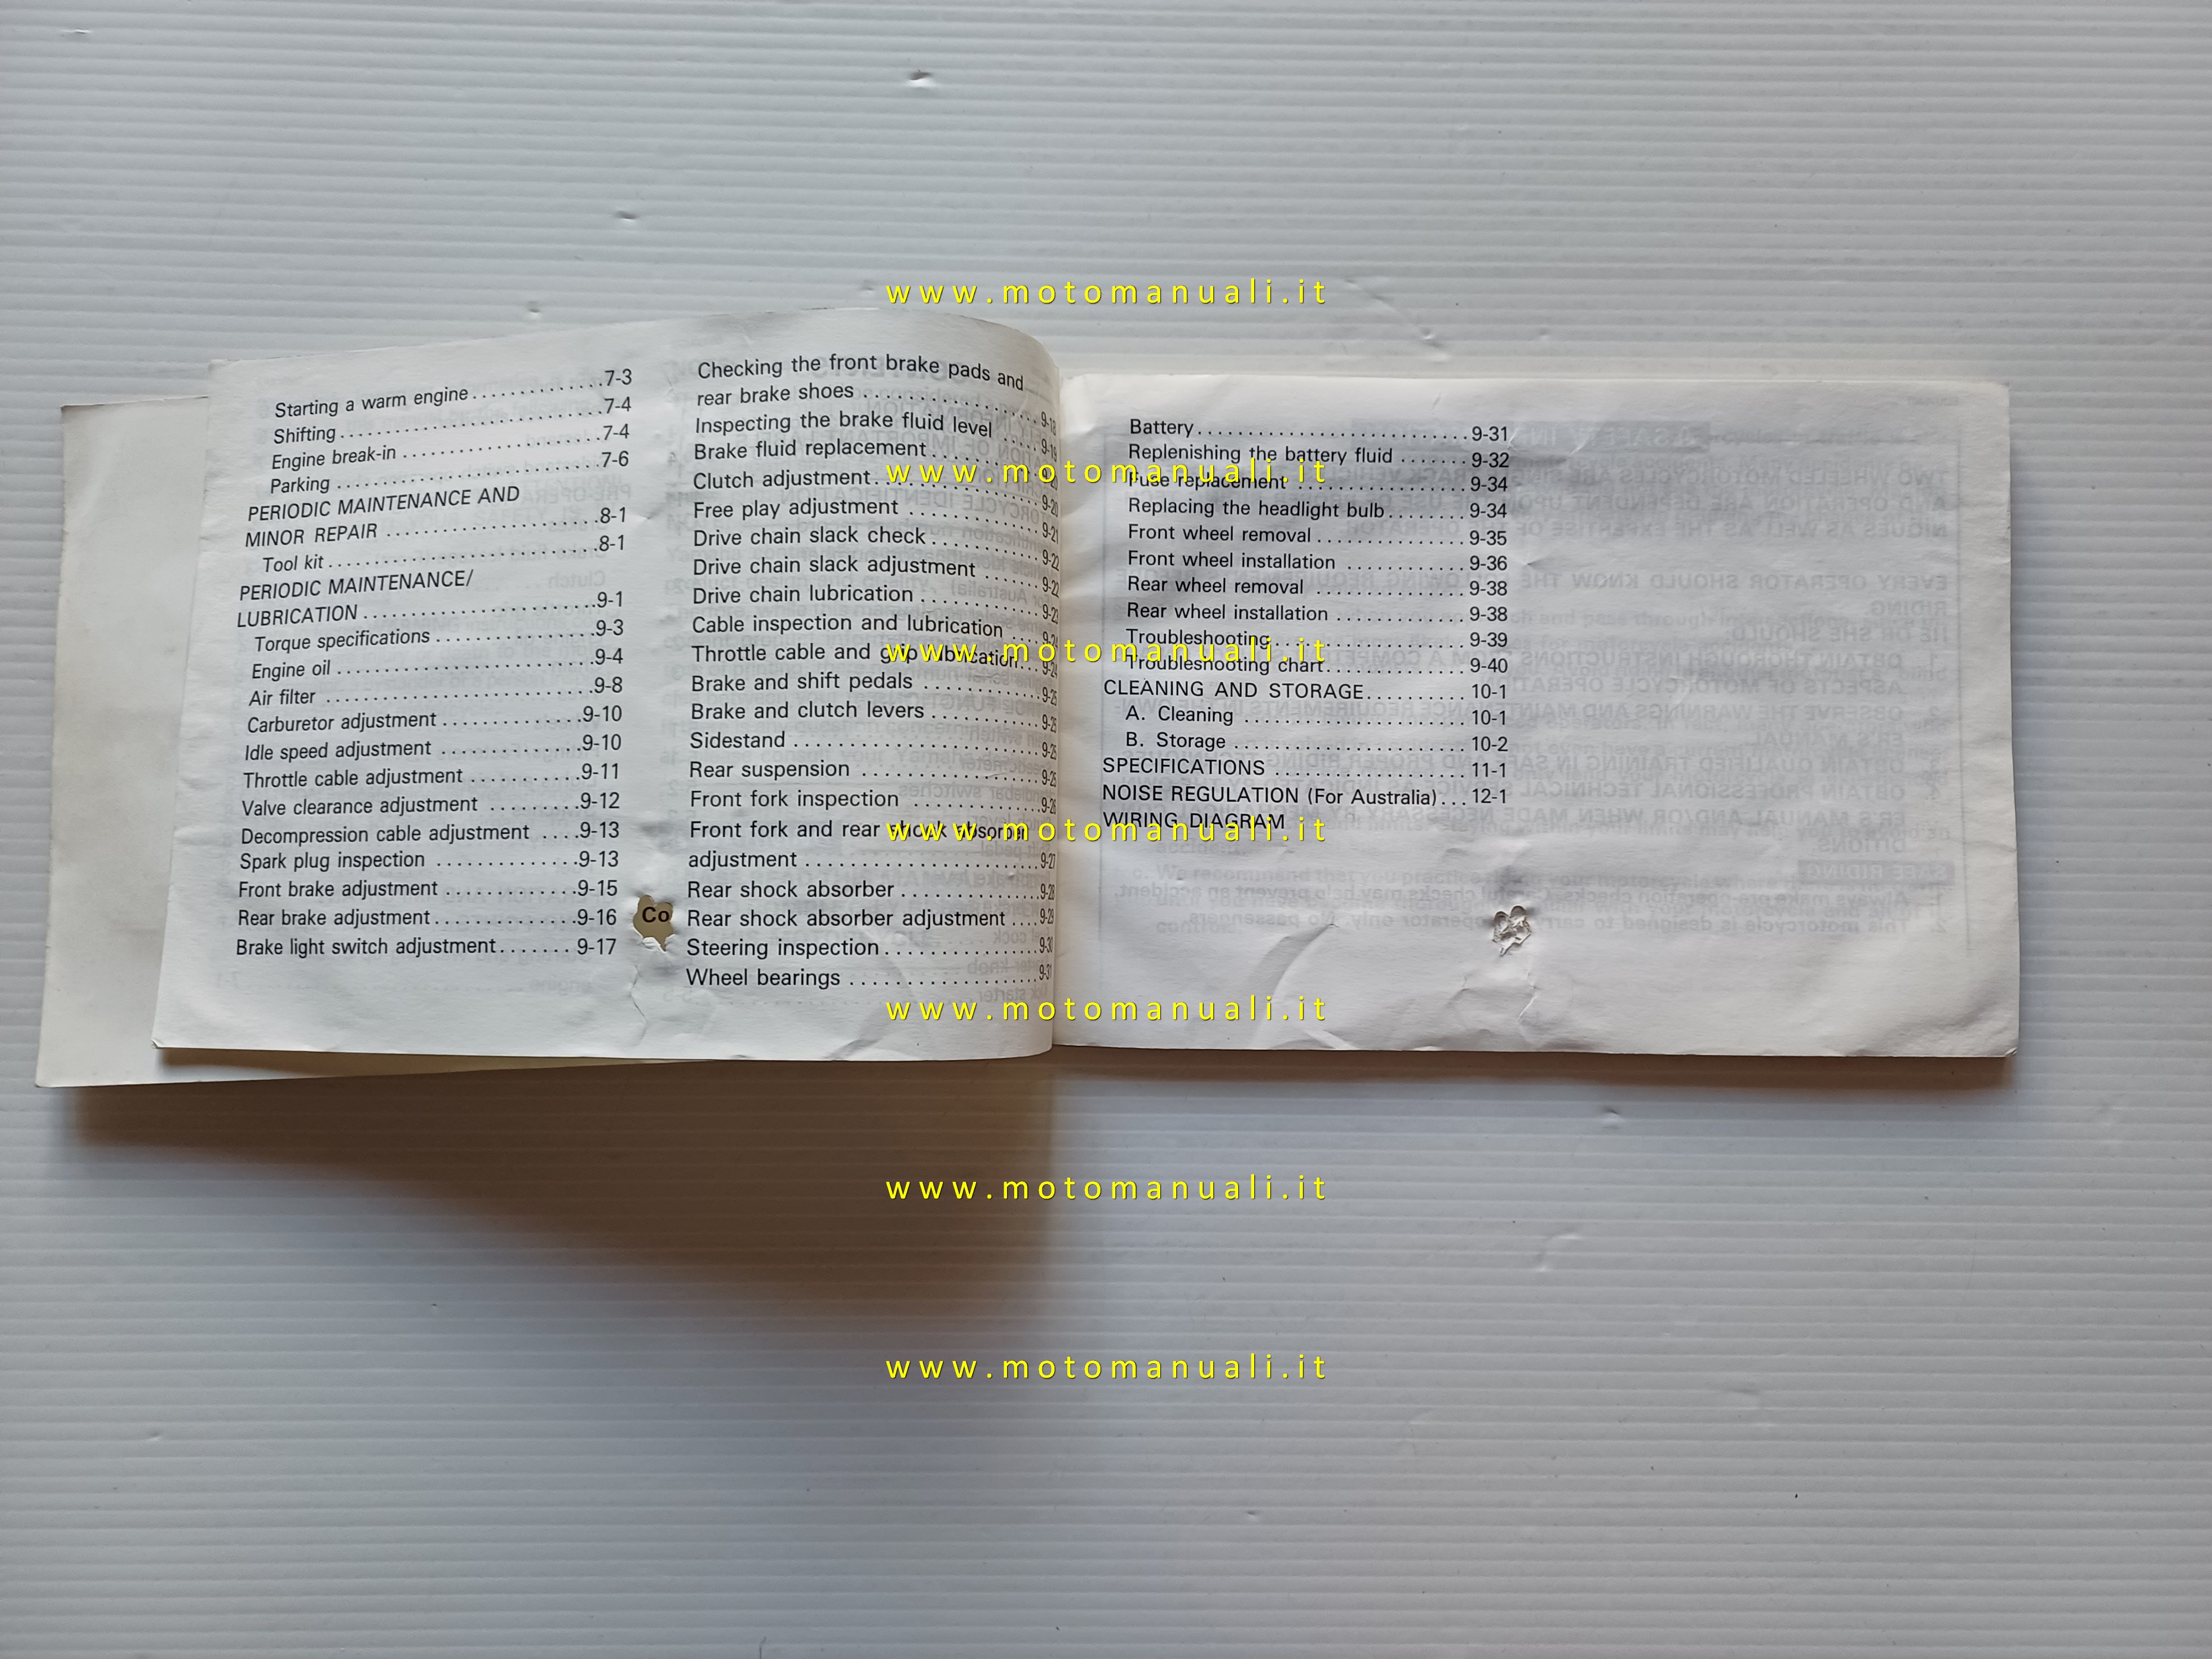 Starting a warm engine..........7-3
Shifting..........7-4
Engine break-in..........7-4
Parking..........7-6
PERIODIC MAINTENANCE AND
MINOR REPAIR..........8-1
Tool kit..........8-1
PERIODIC MAINTENANCE/
LUBRICATION..........9-1
Torque specifications..........9-3
Engine oil..........9-4
Air filter..........9-8
Carburetor adjustment..........9-10
Idle speed adjustment..........9-10
Throttle cable adjustment..........9-11
Valve clearance adjustment..........9-12
Decompression cable adjustment....9-13
Spark plug inspection..........9-13
Front brake adjustment..........9-15
Rear brake adjustment..........9-16
Brake light switch adjustment.......9-17
Co
Checking the front brake pads and
rear brake shoes..........9-18
Inspecting the brake fluid level.....9-19
Brake fluid replacement..........
Clutch adjustment..........9-20
Free play adjustment..........9-21
Drive chain slack check..........9-22
Drive chain slack adjustment.......9-22
Drive chain lubrication..........9-23
Cable inspection and lubrication....9-24
Throttle cable and grip lubrication...9-24
Brake and shift pedals..........9-25
Brake and clutch levers..........9-25
Sidestand..........9-25
Rear suspension..........9-25
Front fork inspection..........9-26
Front fork and rear shock absorber
adjustment..........9-27
Rear shock absorber..........9-28
Rear shock absorber adjustment....9-29
Steering inspection..........9-30
Wheel bearings..........9-31
Battery..........9-31
Replenishing the battery fluid.......9-32
Fuse replacement..........9-34
Replacing the headlight bulb........9-34
Front wheel removal..........9-35
Front wheel installation..........9-36
Rear wheel removal..........9-38
Rear wheel installation..........9-38
Troubleshooting..........9-39
Troubleshooting chart..........9-40
CLEANING AND STORAGE..........10-1
A. Cleaning..........10-1
B. Storage..........10-2
SPECIFICATIONS..........11-1
NOISE REGULATION (For Australia)...12-1
WIRING DIAGRAM
www.motomanuali.it
www.motomanuali.it
www.motomanuali.it
www.motomanuali.it
www.motomanuali.it
www.motomanuali.it
www.motomanuali.it